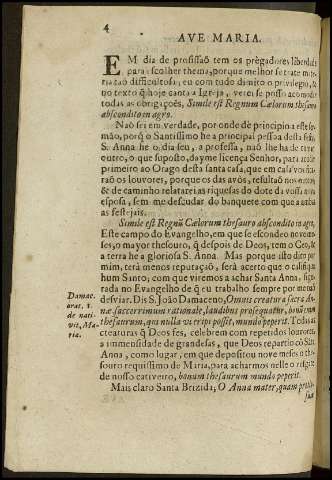 4
AVE MARIA.
EM dia de profissaõ tem os prègadores liberdade
para escolher thema, porque melhor se trate ma-
teria taõ difficultosa; eu com tudo dimito o privilegio, &
no texto q̃ hoje canta a Igreja, verei se posso acomodar
todas as obrigaçoẽs, Simile est Regnum Cælorum thesauro
abscondito in agro.
Naõ sei em verdade, por onde dè principio a este ser-
maõ, porq̃ o Santissimo he a principal pessoa desta festa,
S. Anna he o dia seu, a professa, naõ lhe ha de tirar
outro, o que suposto, dayme licença Senhor, para acodir
primeiro ao Orago desta santa casa, que em casa vos fica-
raõ os louvores, porque os das avós, resultaõ nos netos,
& de caminho relatarei as riquesas do dote da vossa nova
esposa, sem me descudar do banquete com que a ambas
as festejais.
Simile est Regnũ Cælorum thesauro abscondito in agro,
Este campo do Evangelho, em que se escondeo nove me-
ses, o mayor thesouro, q̃ despois de Deos, tem o Ceo, &
a terra he a gloriosa S. Anna. Mas porque isto dito por
mim, terá menos reputaçaõ, será acerto que o califique
hum Santo; com que viremos a achar Santa Anna, liga-
da no Evangelho de q̃ eu trabalho sempre por me naõ
desviar. Dis S. Joaõ Damaceno, Omnis creatura sacra An-
næ sacerrimum rationale, laudibus prosequatur, bonũ enim
thesaurum, qui nulla vi eripi possit, mundo peperit. Todas as
creaturas q̃ Deos fes, celebrem com repetidos louvores,
a immensidade de grandesas, que Deos repartio cõ Sãta
Anna, como lugar, em que depositou nove meses o the-
souro riquissimo de Maria, para acharmos nelle o resgate
de nosso cativeiro, bonum thesaurum mundo peperit.
Mais claro Santa Brizida; O Anna mater, quam preti-
sum
Damac.
orat. 1.
de nati-
vit, Ma-
ria.